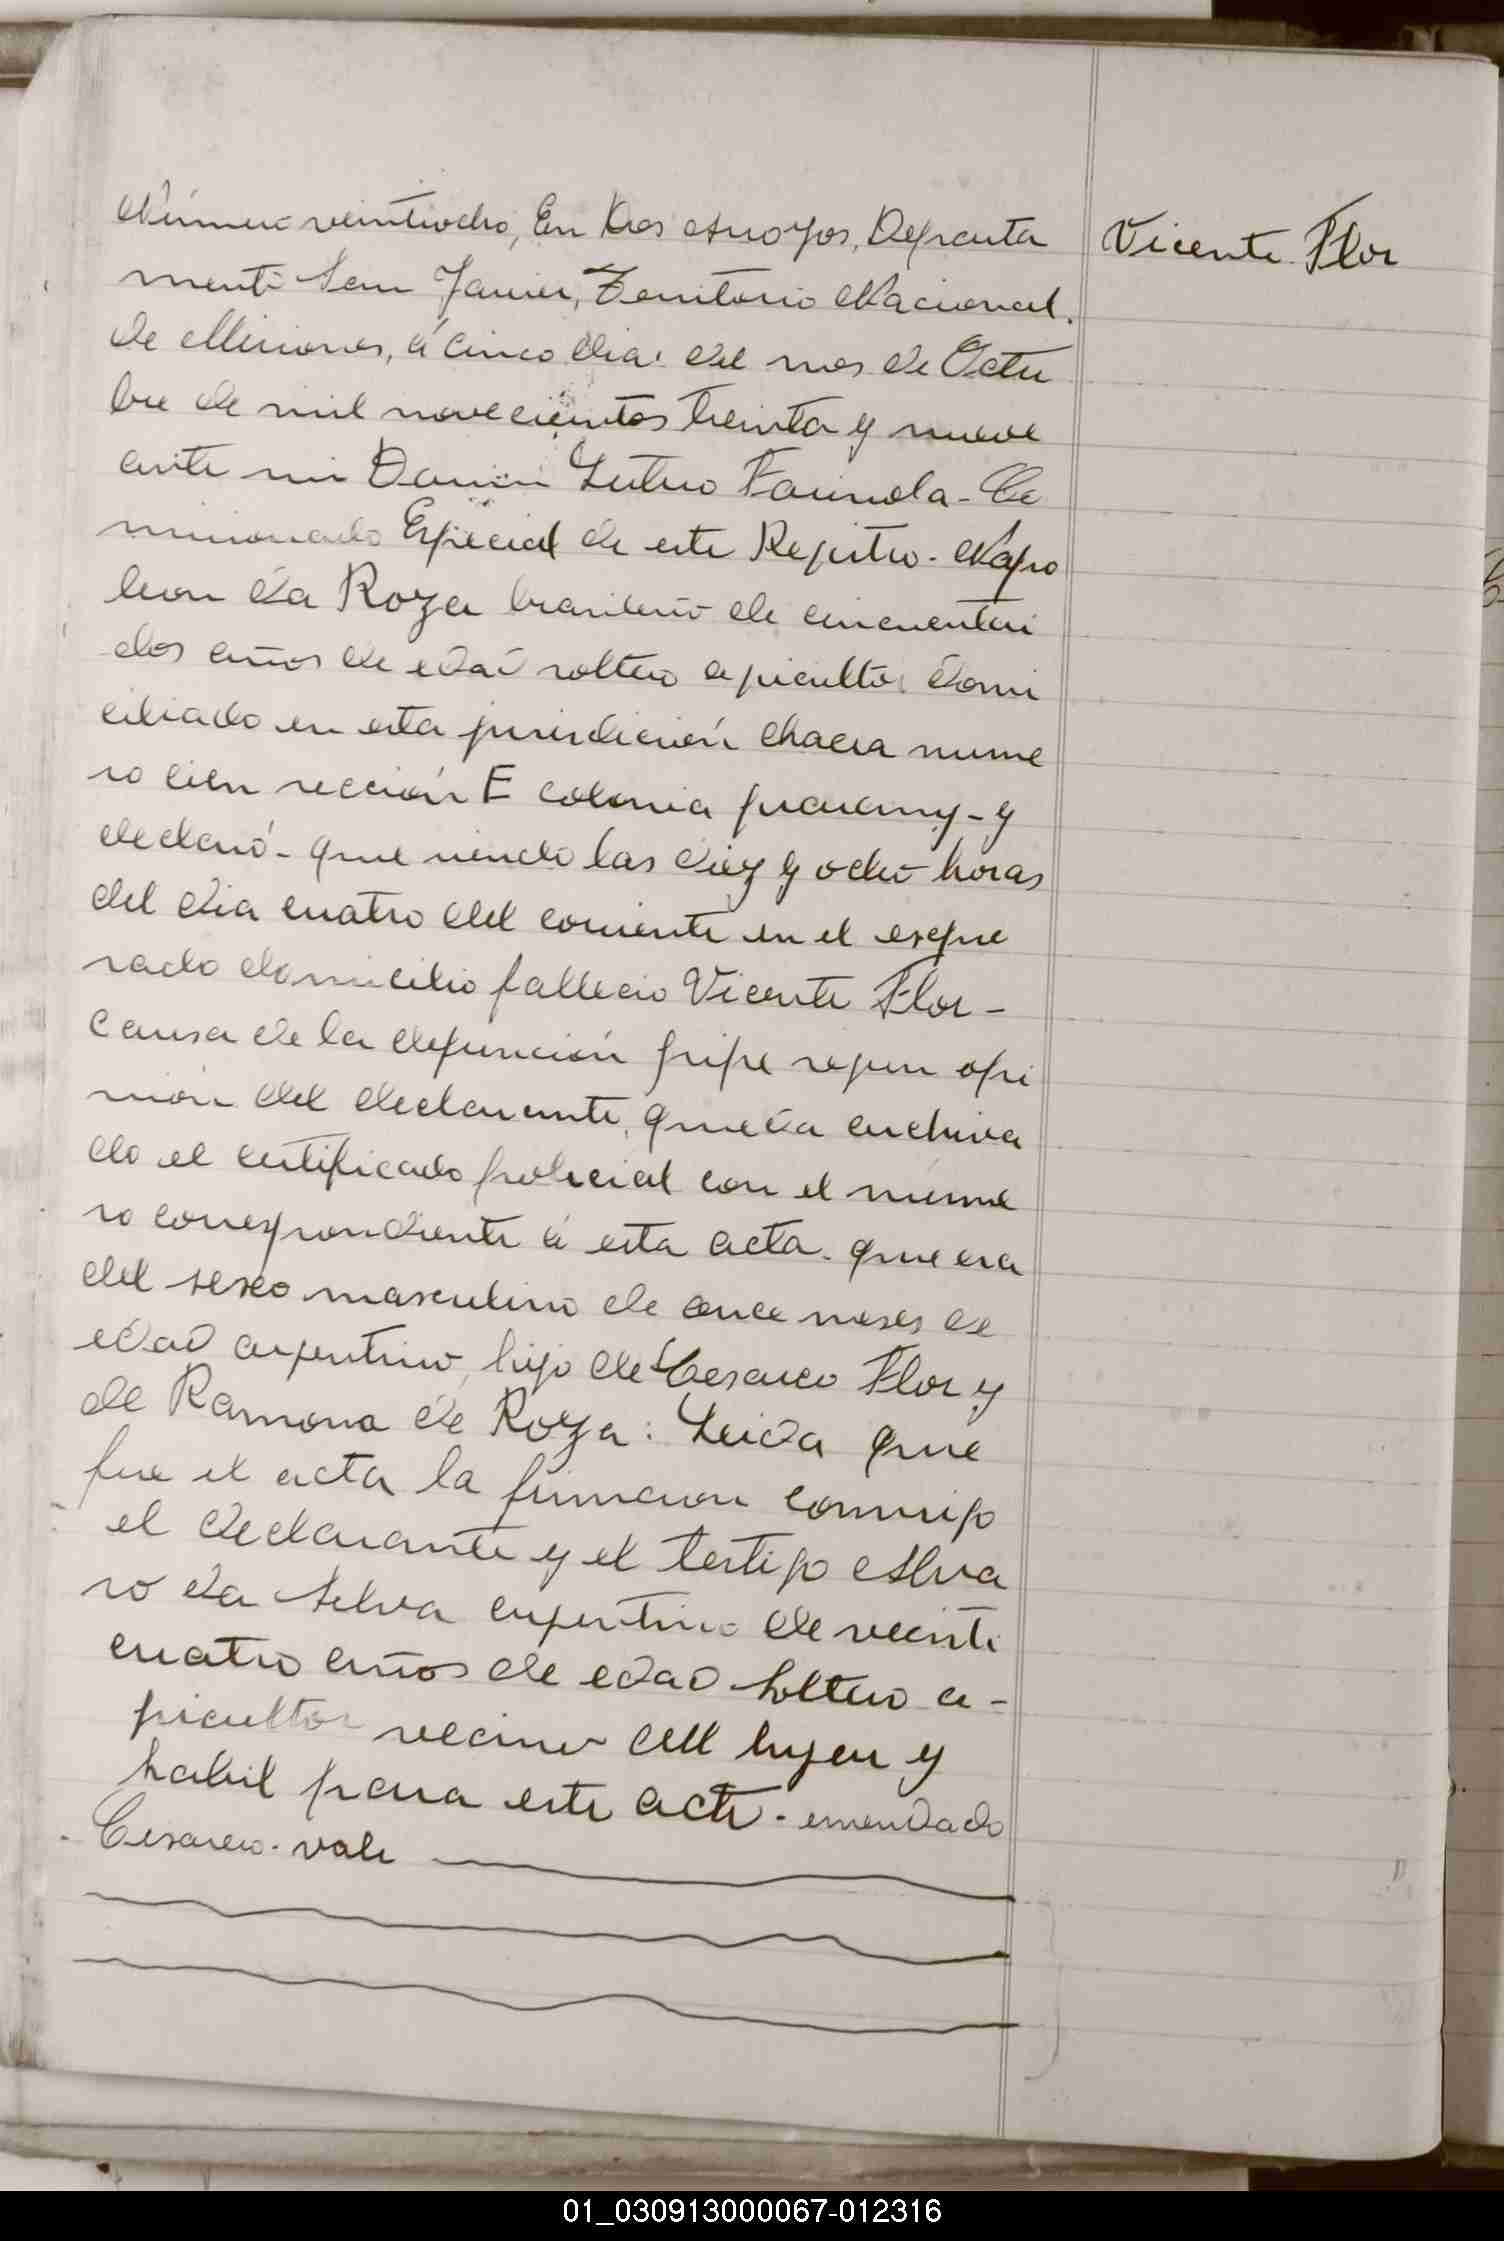 Número veintiocho, En Tres Arroyos, Departa
mento San Javier, Territorio Nacional.
de Misiones, á cinco dias del mes de Octu
bre de mil novecientos treinta y nueve
ante mi Lutero Fariñola - Co
misionado Especial de este Registro - Napo
leon da Roza brasileño de cincuenta i
dos años de edad soltero agricultor domi
ciliado en esta jurisdicción chacra nume
ro cien sección E colonia guarany - y
declaró - que siendo las diez y ocho horas
del dia cuatro del corriente en el expre
sado domicilio fallecio Vicente Flor -
causa de la defunción gripe segun opi
nión del declarante, queda archiva
do el certificado policial con el nume
ro correspondiente á esta acta - que era
del sexo masculino de once meses de
edad argentino, hijo de Cesareo Flor y
de Ramona de Roza: Leida que
fue el acta la firmaron conmigo
el declarante y el testigo Alva
ro da Selva argentino de veinti
cuatro años de edad soltero a-
gricultor vecino del lugar y
habil para este acto - emendado
Cesareo - vale
Vicente Flor
01_030913000067-012316